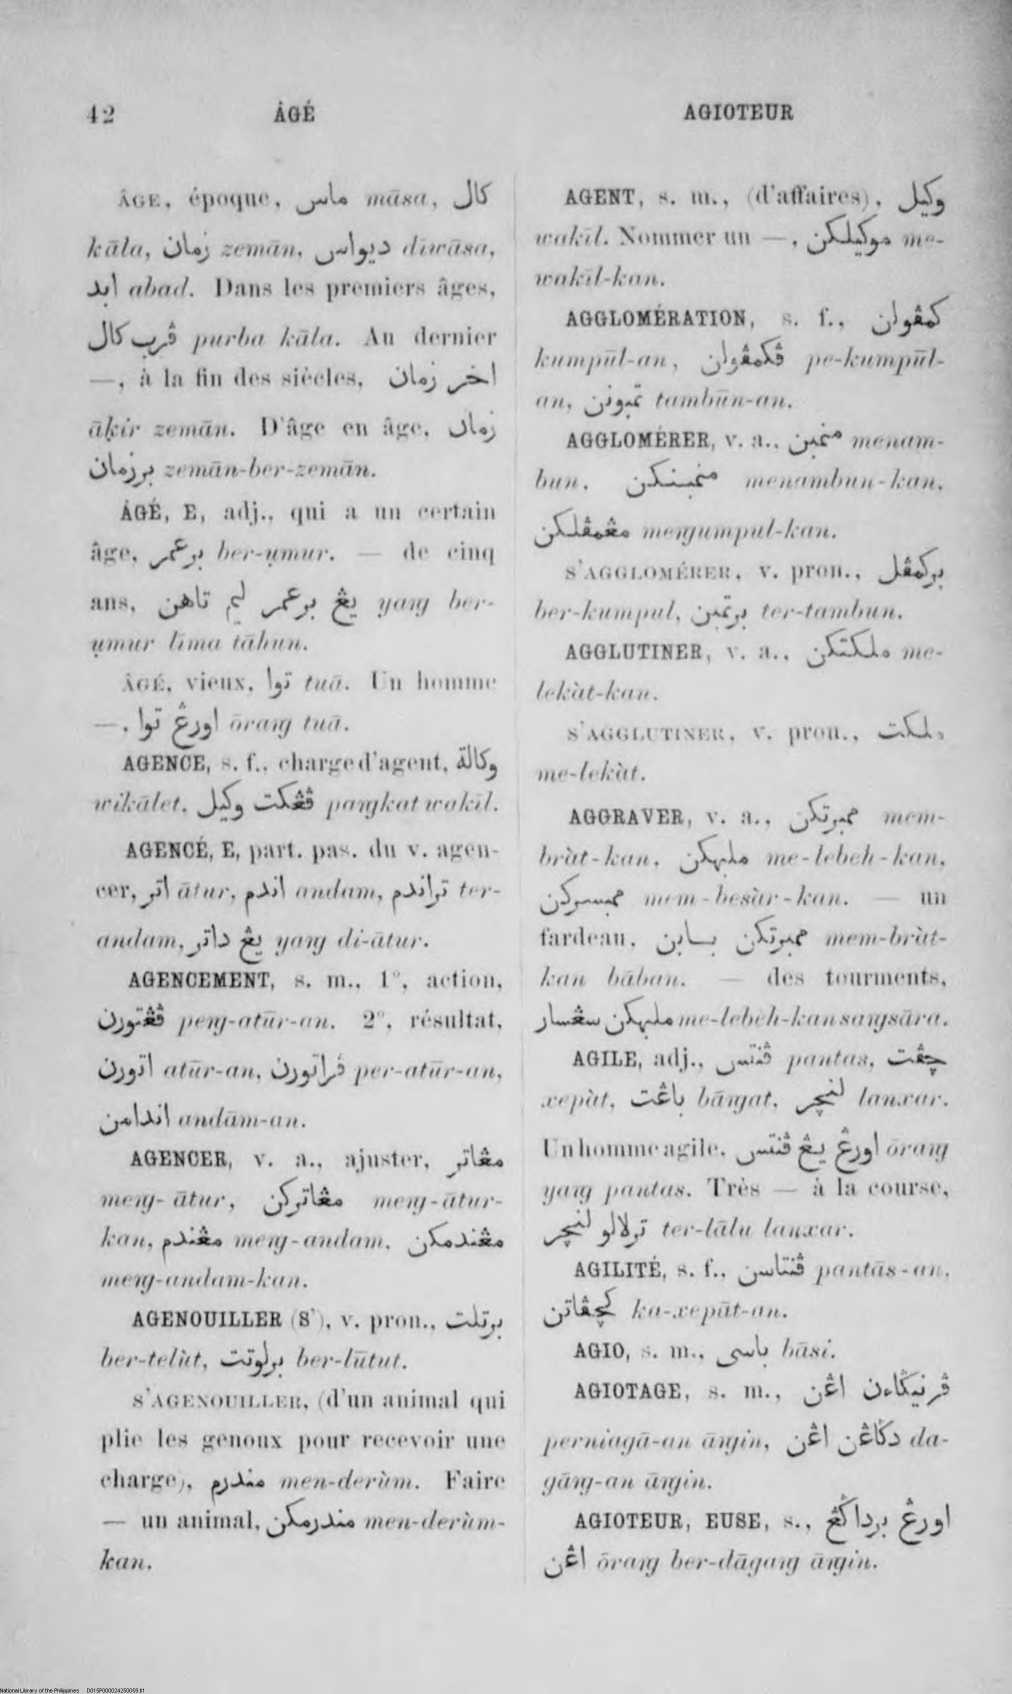 42 ÂGÉ AGIOTEUR
ÂGE, époque, ماس māsa, كال
kāla, زمان zemān, ديواس diwāsa,
ابد abad. Dans les premiers âges,
ڤرب كال purba kāla. Au dernier
—, à la fin des siècles, اخر زمان
āḳir zemān. D'âge en âge, زمان
برزمان zemān-ber-zemān.
ÂGÉ, E, adj., qui a un certain
âge, برعمر ber-ụmur. — de cinq
ans, يڠ برعمر ليم تاهن yaŋ ber-
ụmur līma tāhun.
ÂGÉ, vieux, توا tuā. Un homme
—, اورڠ توا ōraŋ tuā.
AGENCE, s. f., charge d'agent, وكالة
wikālet, ڤڠكت وكيل paŋkat wakīl.
AGENCÉ, E, part. pas. du v. agen-
cer, اتر ātur, اندم andam, تراندم ter-
andam, يڠ داتر yaŋ di-ātur.
AGENCEMENT, s. m., 1°, action,
ڤڠتورن peŋ-atūr-an. 2°, résultat,
اتورن atūr-an, ڤراتورن per-atūr-an,
اندامن andām-an.
AGENCER, v. a., ajuster, مڠاتر
meŋ-ātur, مڠاتركن meŋ-ātur-
kan, مڠندم meŋ-andam, مڠندمكن
meŋ-andam-kan.
AGENOUILLER (S'), v. pron., برتلت
ber-telùt, برلوتت ber-lūtut.
S'AGENOUILLER, (d'un animal qui
plie les genoux pour recevoir une
charge), مندرم men-derùm. Faire
— un animal, مندرمكن men-derùm-
kan.
AGENT, s. m., (d'affaires), وكيل
wakīl. Nommer un —, موكيلكن me-
wakīl-kan.
AGGLOMÉRATION, s. f., كمڤولن
kumpūl-an, ڤكمڤولن pe-kumpūl-
an, تمبونن tambūn-an.
AGGLOMÉRER, v. a., منمبن menam-
bun, منمبنكن menambun-kan,
مڠمڤلكن meŋumpul-kan.
S'AGGLOMÉRER, v. pron., بركمڤل
ber-kumpul, برتمبن ter-tambun.
AGGLUTINER, v. a., ملكتكن me-
lekàt-kan.
S'AGGLUTINER, v. pron., ملكت
me-lekàt.
AGGRAVER, v. a., ممبرتكن mem-
bràt-kan, ملبهكن me-lebeh-kan,
ممبسركن mem-besàr-kan. — un
fardeau, ممبرتكن بابن mem-bràt-
kan bāban. — des tourments,
ملبهكن سڠسار me-lebèh-kan saŋsāra.
AGILE, adj., ڤنتس pantas, چڤت
xepàt, باڠت bāŋat, لنچر lanxar.
Un homme agile, اورڠ يڠ ڤنتس ōraŋ
yaŋ pantas. Très — à la course,
ترلالو لنچر ter-lālu lanxar.
AGILITÉ, s. f., ڤنتاسن pantās-an,
كچڤاتن ka-xepāt-an.
AGIO, s. m., باسى bāsi.
AGIOTAGE, s. m., ڤرنيݢاءن اڠن
perniagā-an āŋin, دݢاڠن اڠن da-
gāŋ-an āŋin.
AGIOTEUR, EUSE, s., اورڠ برداݢڠ
اڠن ōraŋ ber-dāgaŋ āŋin.
National Library of the Philippines